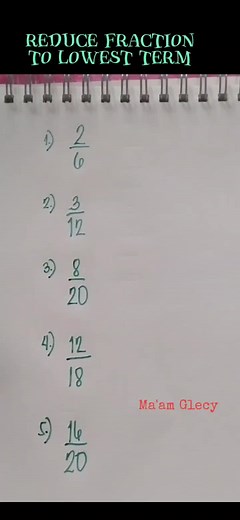 REDUCE FRACTION
TO LOWEST TERM
1.) 2/6
2.) 3/12
3.) 8/20
4.) 12/18
Ma'am Glecy
5.) 16/20